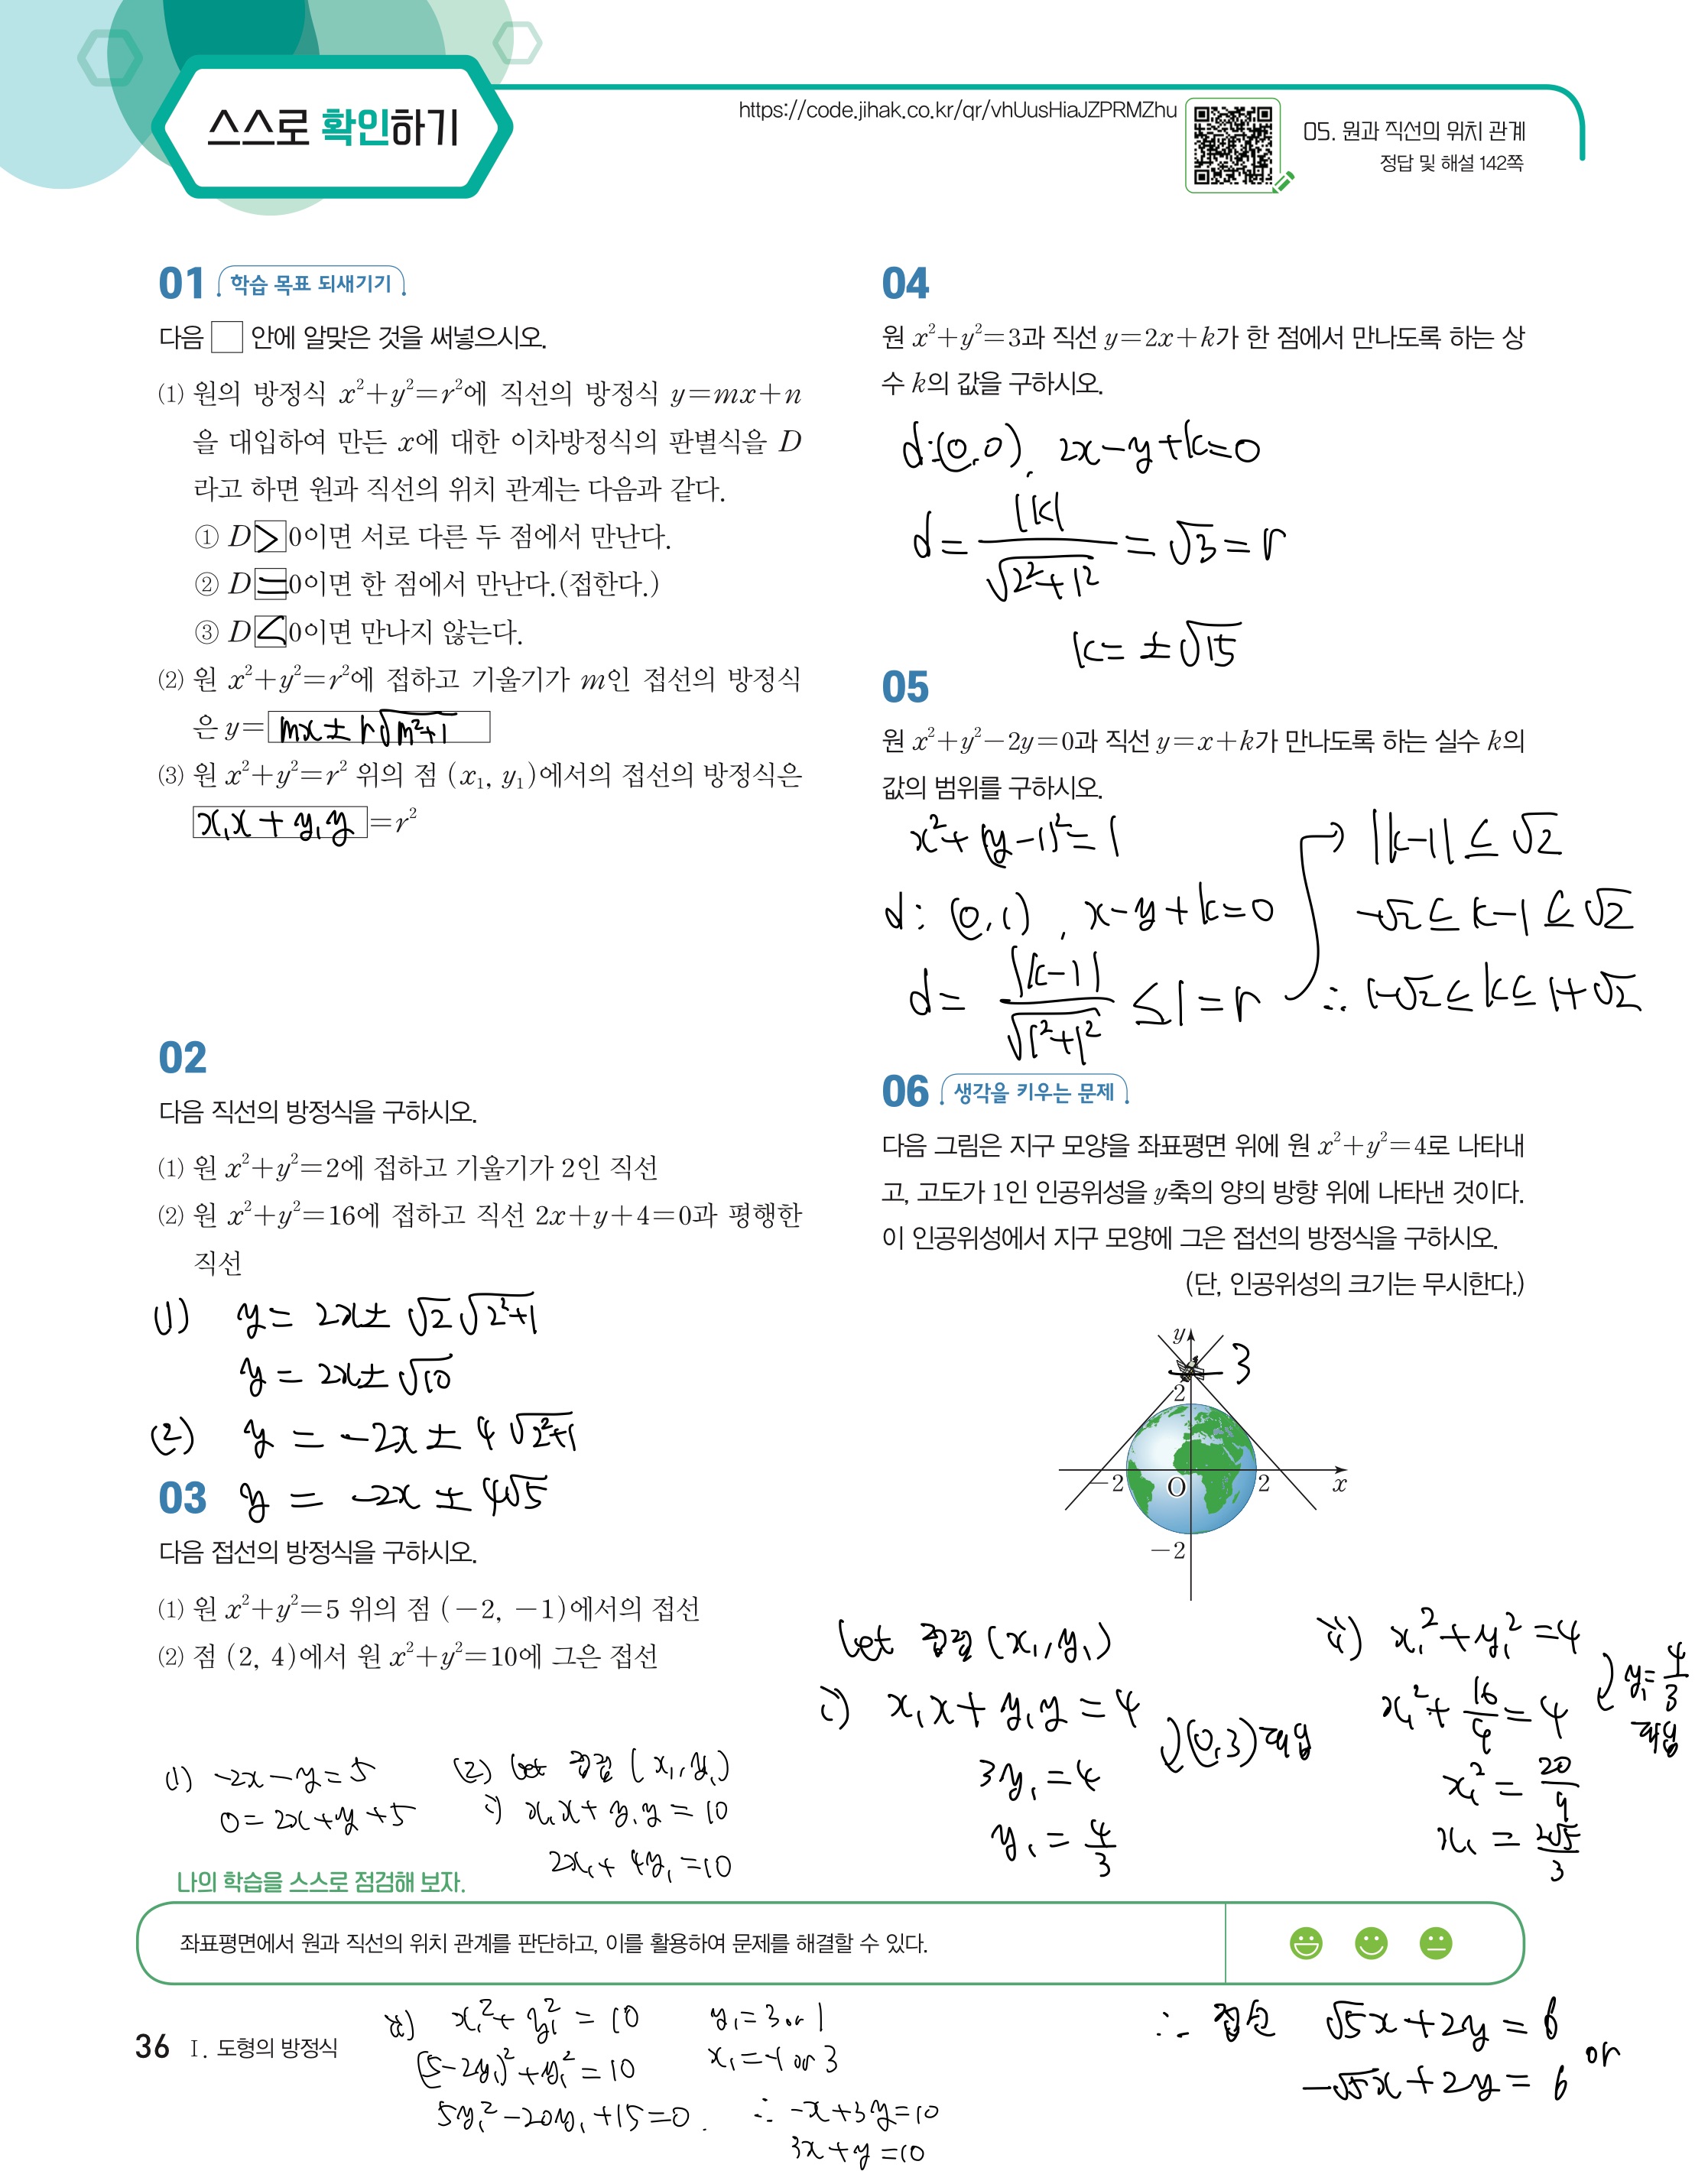 스스로 확인하기
https://code.jihak.co.kr/qr/vhUusHiaJZPRMZhu
05. 원과 직선의 위치 관계
정답 및 해설 142쪽
01 학습 목표 되새기기
다음 □ 안에 알맞은 것을 써넣으시오.
⑴ 원의 방정식 x²+y²=r²에 직선의 방정식 y=mx+n
을 대입하여 만든 x에 대한 이차방정식의 판별식을 D
라고 하면 원과 직선의 위치 관계는 다음과 같다.
① D>0이면 서로 다른 두 점에서 만난다.
② D=0이면 한 점에서 만난다.(접한다.)
③ D<0이면 만나지 않는다.
⑵ 원 x²+y²=r²에 접하고 기울기가 m인 접선의 방정식
은 y=mx±r√(m²+1)
⑶ 원 x²+y²=r² 위의 점 (x₁, y₁)에서의 접선의 방정식은
x₁x+y₁y=r²
02
다음 직선의 방정식을 구하시오.
⑴ 원 x²+y²=2에 접하고 기울기가 2인 직선
⑵ 원 x²+y²=16에 접하고 직선 2x+y+4=0과 평행한
직선
(1) y=2x±√2√(2²+1)
y=2x±√10
(2) y=-2x±4√(2²+1)
y=-2x±4√5
03
다음 접선의 방정식을 구하시오.
⑴ 원 x²+y²=5 위의 점 (-2, -1)에서의 접선
⑵ 점 (2, 4)에서 원 x²+y²=10에 그은 접선
(1) -2x-y=5
0=2x+y+5
(2) let 접점 (x₁, y₁)
i) x₁x+y₁y=10
2x₁+4y₁=10
ii) x₁²+y₁²=10
(5-2y₁)²+y₁²=10
5y₁²-20y₁+15=0.
y₁=3 or 1
x₁=-1 or 3
∴ -x+3y=10
3x+y=10
04
원 x²+y²=3과 직선 y=2x+k가 한 점에서 만나도록 하는 상
수 k의 값을 구하시오.
d:(0,0), 2x-y+k=0
d=|k|/√(2²+1²)=√3=r
k=±√15
05
원 x²+y²-2y=0과 직선 y=x+k가 만나도록 하는 실수 k의
값의 범위를 구하시오.
x²+(y-1)²=1
d: (0,1), x-y+k=0
d=|k-1|/√(1²+1²)≤1=r
→ |k-1|≤√2
-√2≤k-1≤√2
∴ 1-√2≤k≤1+√2
06 생각을 키우는 문제
다음 그림은 지구 모양을 좌표평면 위에 원 x²+y²=4로 나타내
고, 고도가 1인 인공위성을 y축의 양의 방향 위에 나타낸 것이다.
이 인공위성에서 지구 모양에 그은 접선의 방정식을 구하시오.
(단, 인공위성의 크기는 무시한다.)
y
3
2
-2 O 2 x
-2
let 접점 (x₁, y₁)
i) x₁x+y₁y=4
(0,3) 대입
3y₁=4
y₁=4/3
ii) x₁²+y₁²=4
y₁=4/3
대입
x₁²+16/9=4
x₁²=20/9
x₁=2√5/3
∴ 접선 √5x+2y=6
or
-√5x+2y=6
나의 학습을 스스로 점검해 보자.
좌표평면에서 원과 직선의 위치 관계를 판단하고, 이를 활용하여 문제를 해결할 수 있다.
36 Ⅰ. 도형의 방정식